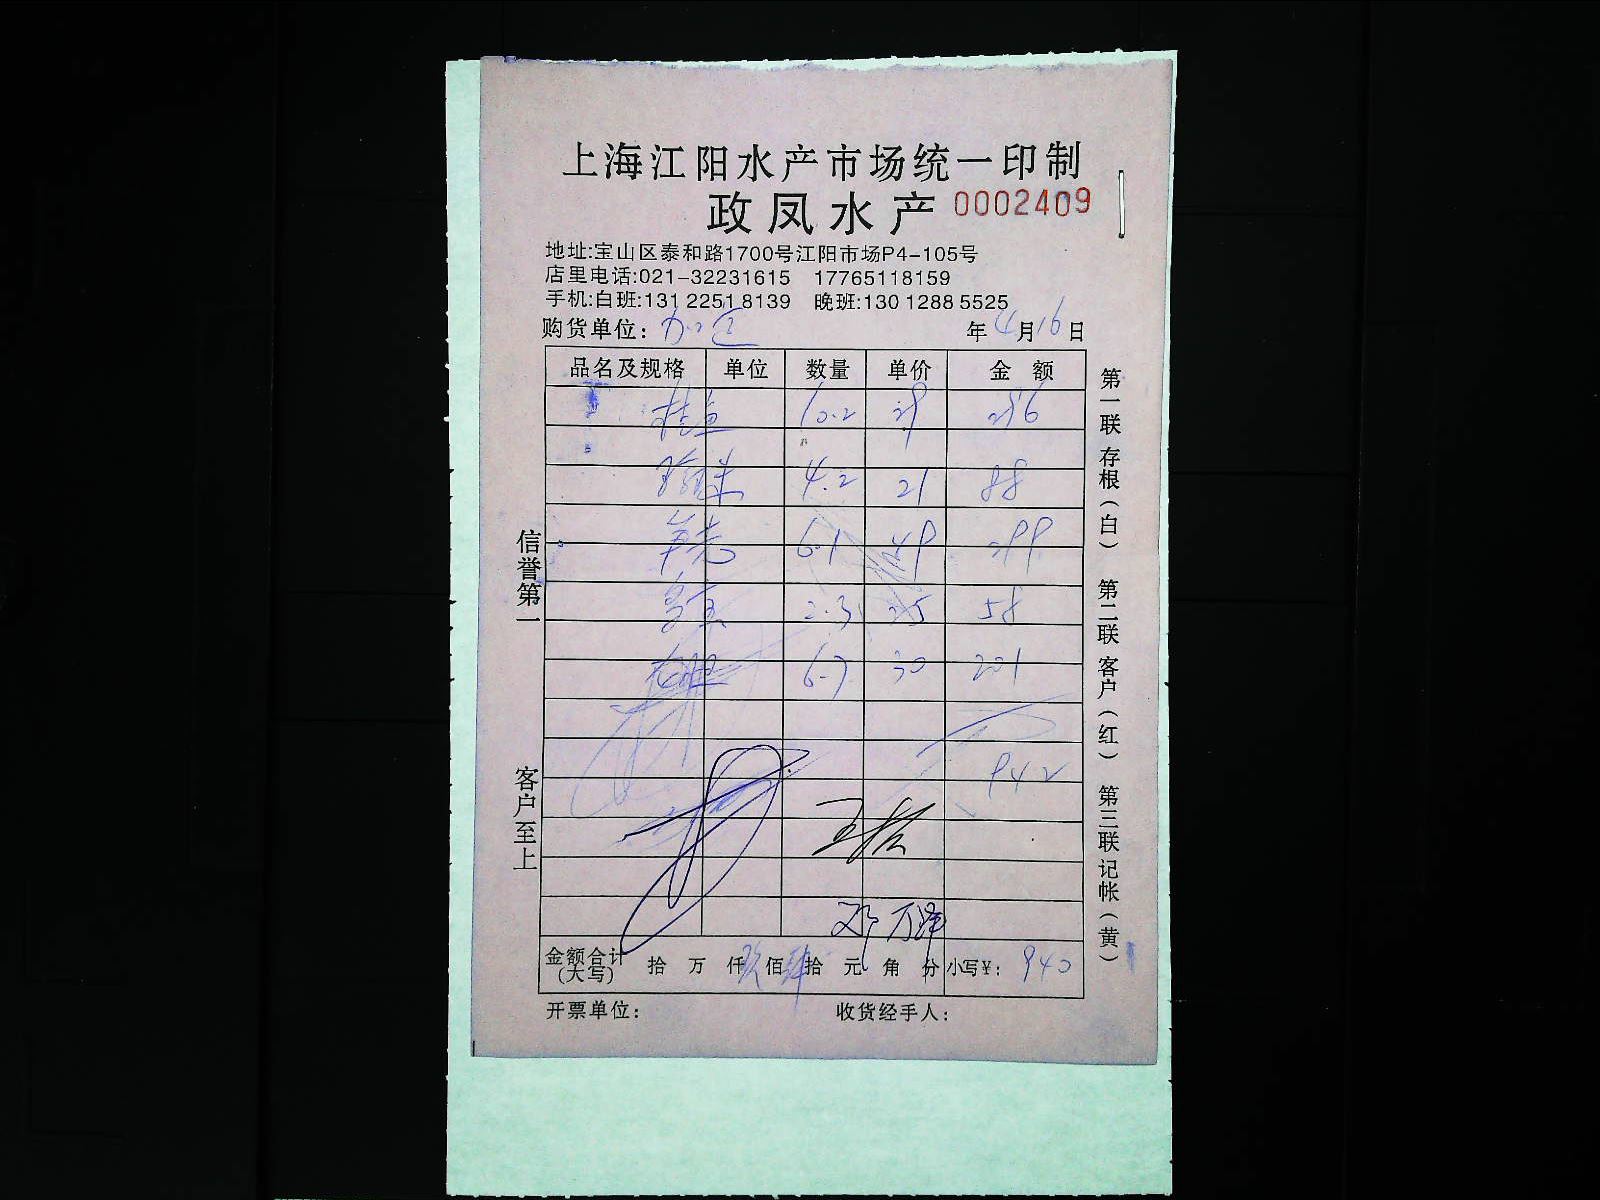 上海江阳水产市场统一印制
政凤水产 0002409
地址:宝山区泰和路1700号江阳市场P4-105号
店里电话:021-32231615 17765118159
手机:白班:131 2251 8139 晚班:130 1288 5525
购货单位: 年4月16日
品名及规格 单位 数量 单价 金额
桂鱼 10.2 29 296
4.2 21 88
6.1 49 299
2.3 25 58
6.7 30 201
942
金额合计(大写) 拾 万 仟 玖佰 肆拾 元 角 分 小写¥: 940
开票单位: 收货经手人:
信誉第一
客户至上
第一联存根(白) 第二联客户(红) 第三联记帐(黄)